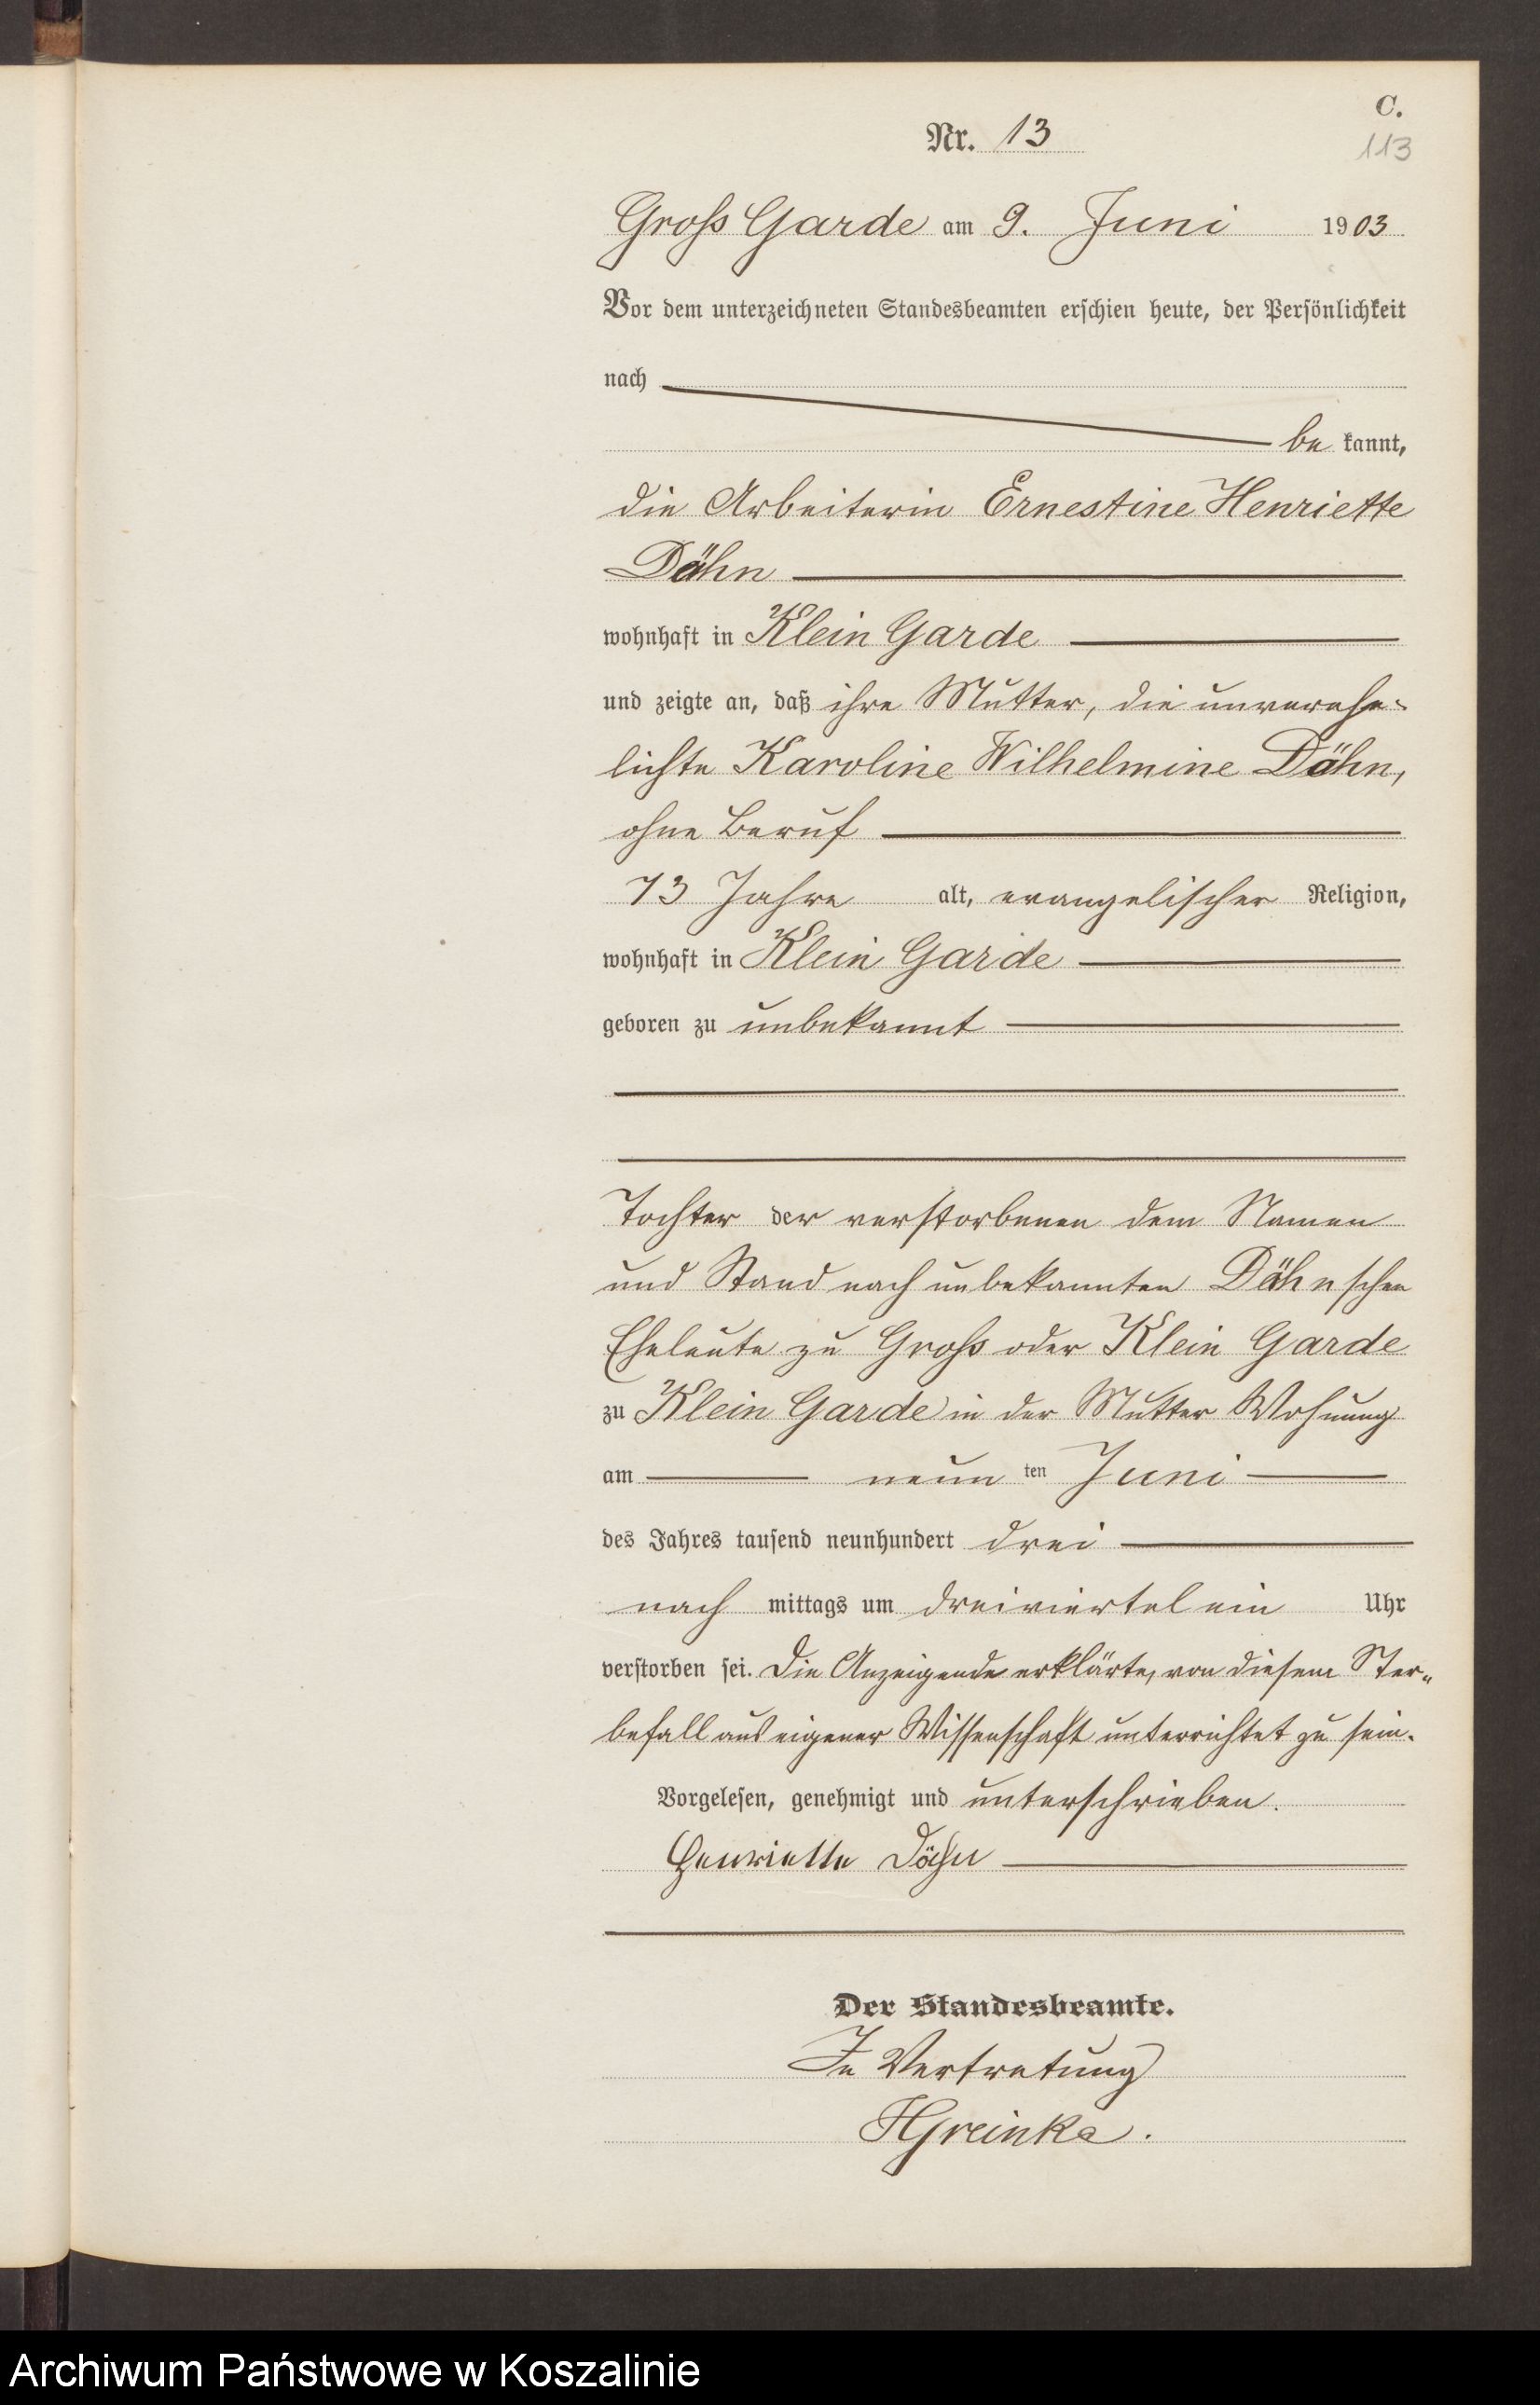 C.
Nr. 13
113
Gross Garde am 9. Juni 1903
Vor dem unterzeichneten Standesbeamten erschien heute, der Persönlichkeit
nach
be kannt,
die Arbeiterin Ernestine Henriette
Dähn
wohnhaft in Klein Garde
und zeigte an, daß ihre Mutter, die unverehe-
lichte Karoline Wilhelmine Dähn,
ohne Beruf
73 Jahre alt, evangelischer Religion,
wohnhaft in Klein Garde
geboren zu unbekannt
Tochter der verstorbenen dem Namen
und Stand nach unbekannten Dähnschen
Eheleute zu Gross oder Klein Garde
zu Klein Garde in der Mutter Wohnung
am neun ten Juni
des Jahres tausend neunhundert drei
nach mittags um dreiviertel ein Uhr
verstorben sei. Die Anzeigende erklärte, von diesem Ster-
befall aus eigener Wissenschaft unterrichtet zu sein.
Vorgelesen, genehmigt und unterschrieben.
Henriette Dähn
Der Standesbeamte.
In Vertretung
HGreinke.
Archiwum Państwowe w Koszalinie